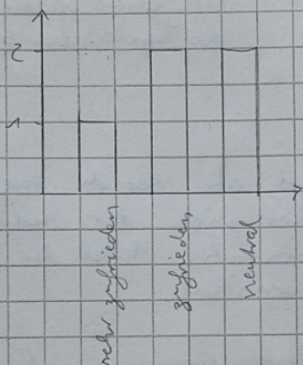 2
1
sehr zufrieden
zufrieden
neutral